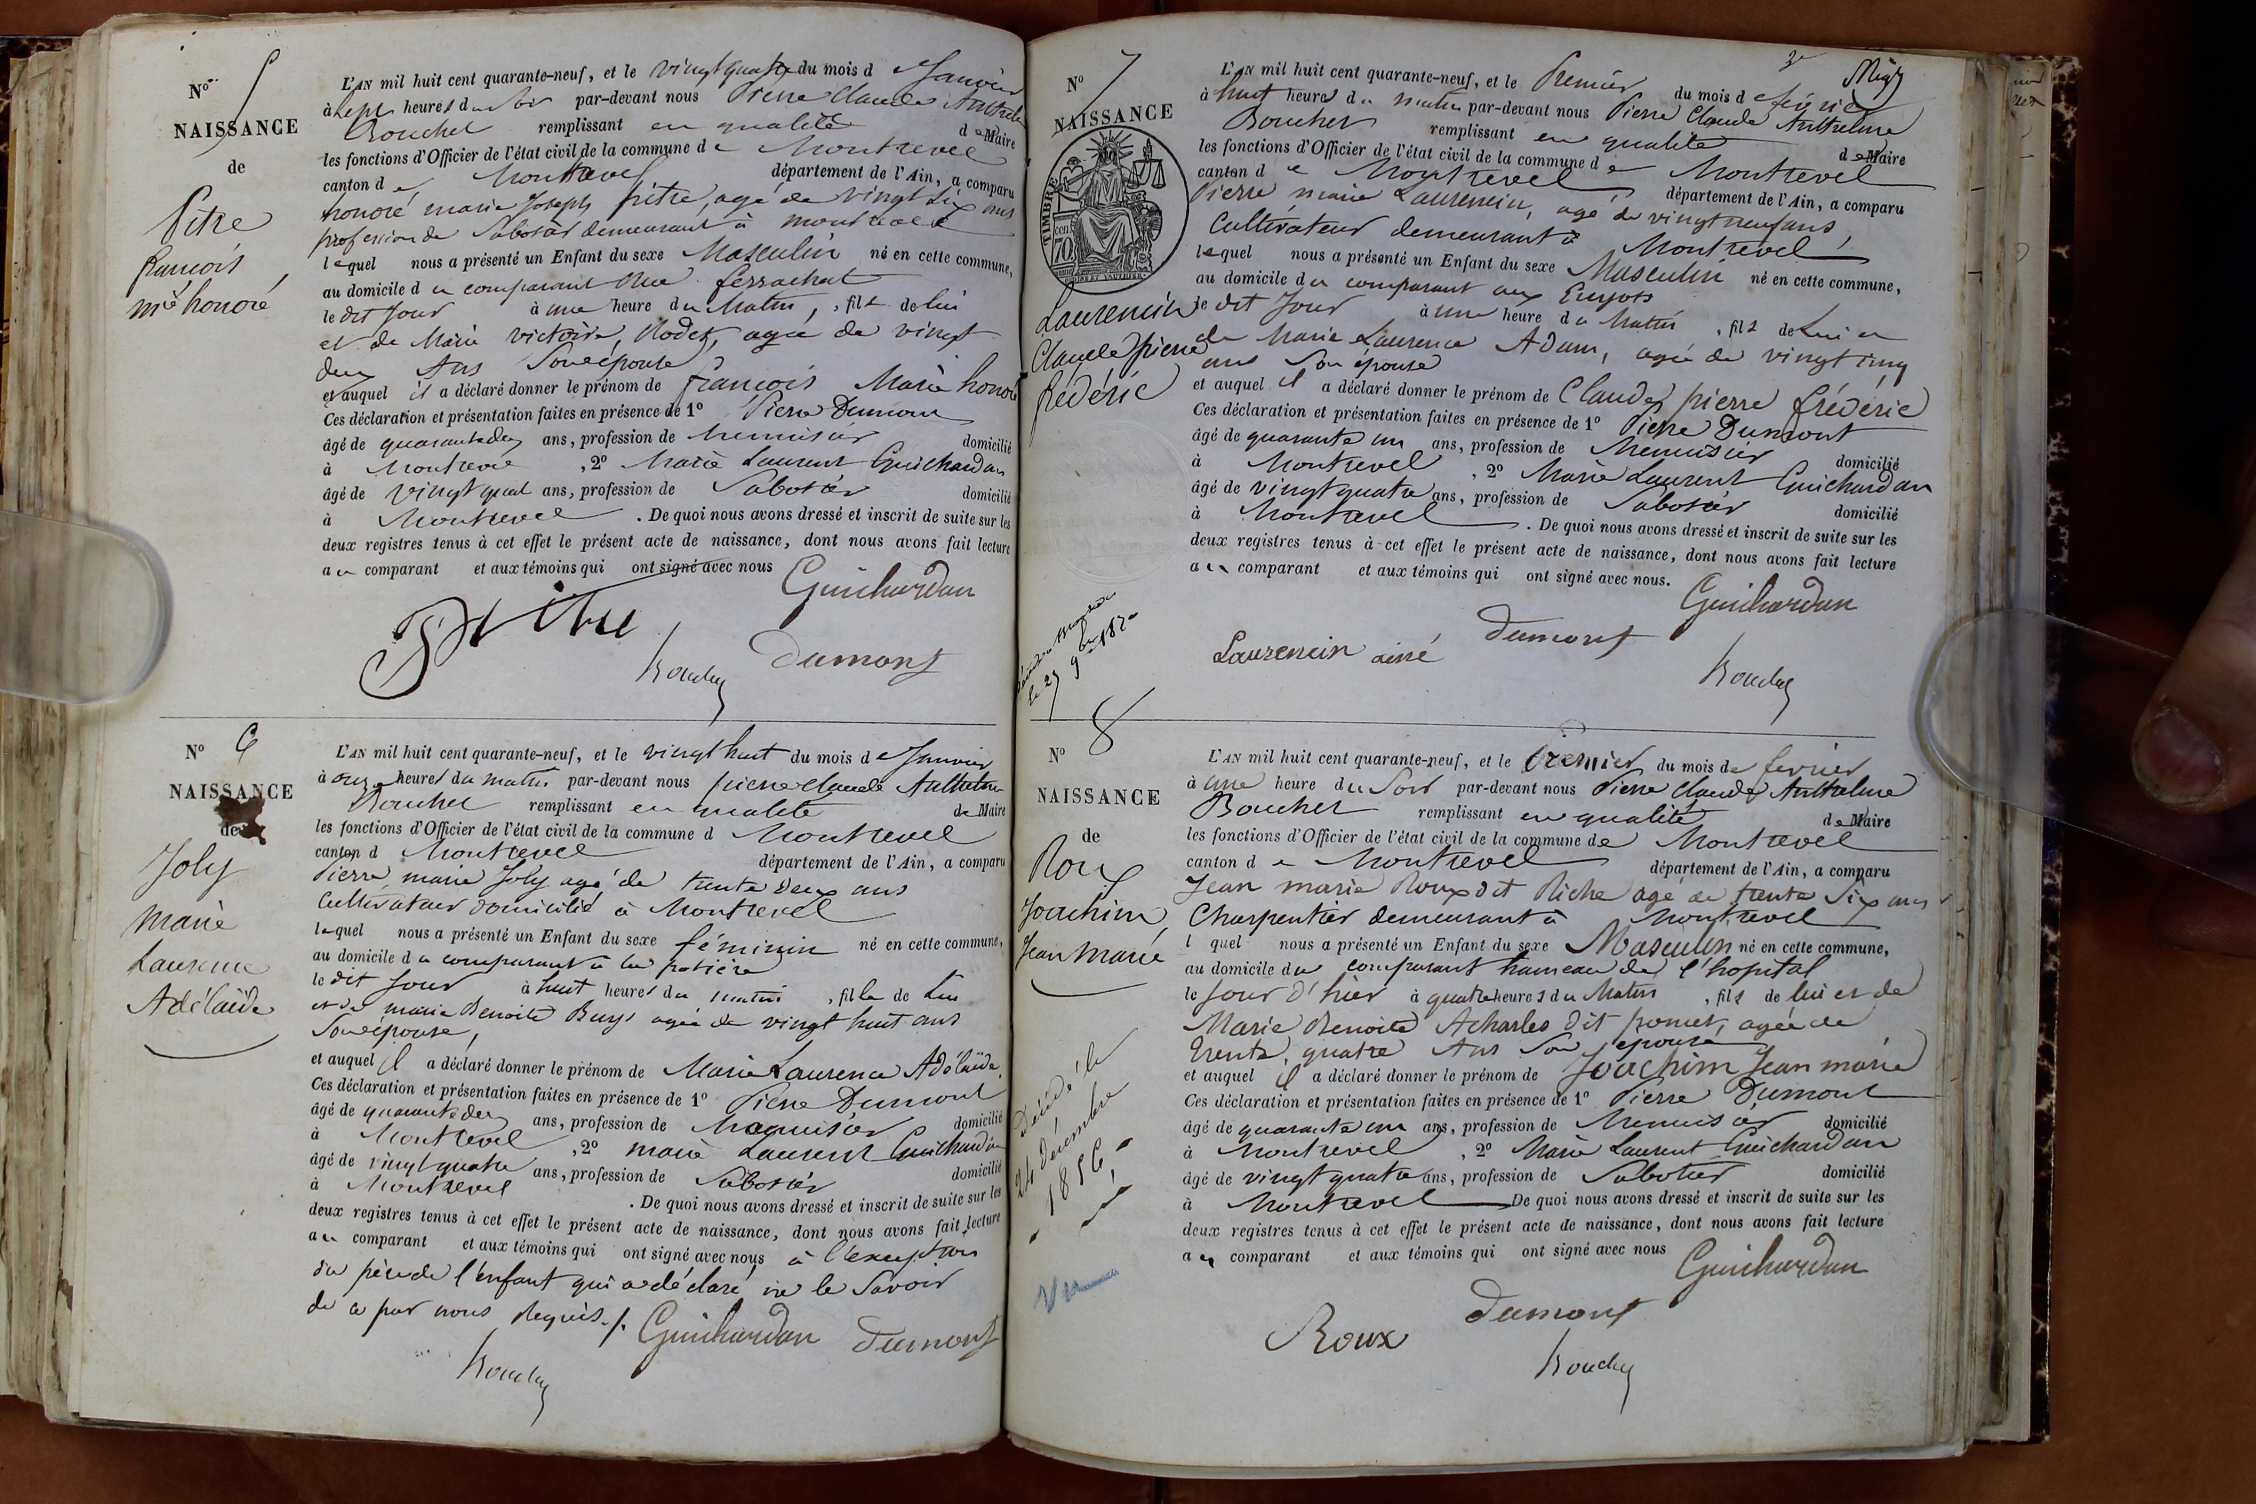 Nº 5
NAISSANCE
de
Pitre
francois
mie honoré
L'AN mil huit cent quarante-neuf, et le vingt quatre du mois de Janvier
à Sept heures du soir par-devant nous Pierre Claude Anthelme
Bouchet remplissant en qualité de Maire
les fonctions d'Officier de l'état civil de la commune de Montrevel
canton de Montrevel département de l'Ain, a comparu
honoré marie Joseph pitre, agé de vingt Six ans
profession de Sabotier demeurant à montrevel
lequel nous a présenté un Enfant du sexe Masculin né en cette commune,
au domicile du comparant Rue ferrachat
le dit Jour à une heure du Matin, fils de lui
et de Marie victoire Rodet, agée de vingt
deux Ans Son épouse
et auquel il a déclaré donner le prénom de francois Marie honoré
Ces déclaration et présentation faites en présence de 1º Pierre Dumont
âgé de quarante deux ans, profession de Menuisier domicilié
à Montrevel, 2º Marie Laurent Guichardan
âgé de vingt quat ans, profession de Sabotier domicilié
à Montrevel. De quoi nous avons dressé et inscrit de suite sur les
deux registres tenus à cet effet le présent acte de naissance, dont nous avons fait lecture
au comparant et aux témoins qui ont signé avec nous
Guichardan
Pitre
Bouchet
Dumont
Nº 6
NAISSANCE
de
Joly
Marie
Laurence
Adélaïde
L'AN mil huit cent quarante-neuf, et le vingt huit du mois de Janvier
à onze heures du matin par-devant nous pierre Claude Anthelme
Bouchet remplissant en qualité de Maire
les fonctions d'Officier de l'état civil de la commune d Montrevel
canton d Montrevel département de l'Ain, a comparu
Pierre marie Joly agé de trente deux ans
Cultivateur domicilié à Montrevel
lequel nous a présenté un Enfant du sexe féminin né en cette commune,
au domicile du comparant à la
le dit Jour à huit heures du matin, fille de Lui
et de marie Benoite Buys agée de vingt huit ans
Son épouse,
et auquel il a déclaré donner le prénom de Marie Laurence Adélaïde.
Ces déclaration et présentation faites en présence de 1º Pierre Dumont
âgé de quarante deux ans, profession de Menuisier domicilié
à Montrevel, 2º marie Laurent Guichardan
âgé de vingt quatre ans, profession de Sabotier domicilié
à Montrevel. De quoi nous avons dressé et inscrit de suite sur les
deux registres tenus à cet effet le présent acte de naissance, dont nous avons fait lecture
au comparant et aux témoins qui ont signé avec nous à l'exception
du père de l'enfant qui a déclaré ne le Savoir
de ce par nous Requis./.
Guichardan Dumont
Bouchet
3e
Nº 7
NAISSANCE
TIMBRE
70
Laurencin
Claude pierre
frédéric
L'AN mil huit cent quarante-neuf, et le Premier du mois de février
à huit heures du matin par-devant nous Pierre Claude Anthelme
Bouchet remplissant en qualité de Maire
les fonctions d'Officier de l'état civil de la commune de Montrevel
canton de Montrevel département de l'Ain, a comparu
Pierre marie Laurencin, agé de vingt neuf ans,
Cultivateur demeurant à Montrevel
lequel nous a présenté un Enfant du sexe Masculin né en cette commune,
au domicile du comparant aux
le dit Jour à une heure du Matin, fils de Lui et
de Marie Laurence Adam, agée de vingt cinq
ans Son épouse
et auquel il a déclaré donner le prénom de Claude pierre frédéric
Ces déclaration et présentation faites en présence de 1º Pierre Dumont
âgé de quarante un ans, profession de Menuisier domicilié
à Montrevel, 2º Marie Laurent Guichardan
âgé de vingt quatre ans, profession de Sabotier domicilié
à Montrevel. De quoi nous avons dressé et inscrit de suite sur les
deux registres tenus à cet effet le présent acte de naissance, dont nous avons fait lecture
au comparant et aux témoins qui ont signé avec nous.
Guichardan
Dumont
Laurencin ainé
Bouchet
Nº 8
NAISSANCE
de
Roux
Joachim
Jean Marie
Décédé le
24 décembre
1856
Vu
L'AN mil huit cent quarante-neuf, et le Premier du mois de fevrier
à une heure du Soir par-devant nous Pierre Claude Anthelme
Bouchet remplissant en qualité de Maire
les fonctions d'Officier de l'état civil de la commune de Montrevel
canton de Montrevel département de l'Ain, a comparu
Jean marie Roux dit Riche agé de trente Six ans
Charpentier demeurant à Montrevel
l quel nous a présenté un Enfant du sexe Masculin né en cette commune,
au domicile du comparant hameau de l'hopital
le Jour d'hier à quatre heures du Matin, fils de lui et de
Marie Benoite Acharles dit pomet, agée de
trente quatre Ans Son épouse
et auquel il a déclaré donner le prénom de Joachim Jean marie
Ces déclaration et présentation faites en présence de 1º Pierre Dumont
âgé de quarante un ans, profession de Menuisier domicilié
à Montrevel, 2º Marie Laurent Guichardan
âgé de vingt quatre ans, profession de Sabotier domicilié
à Montrevel De quoi nous avons dressé et inscrit de suite sur les
deux registres tenus à cet effet le présent acte de naissance, dont nous avons fait lecture
au comparant et aux témoins qui ont signé avec nous
Guichardan
Dumont
Roux
Bouchet